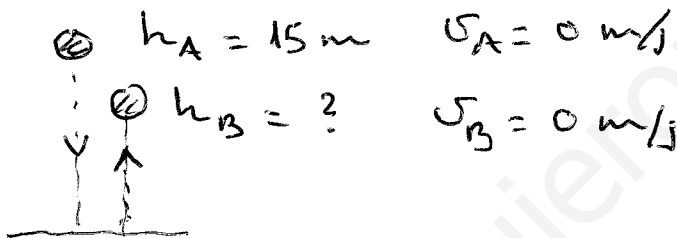 h_A = 15 m    v_A = 0 m/s
h_B = ?    v_B = 0 m/s